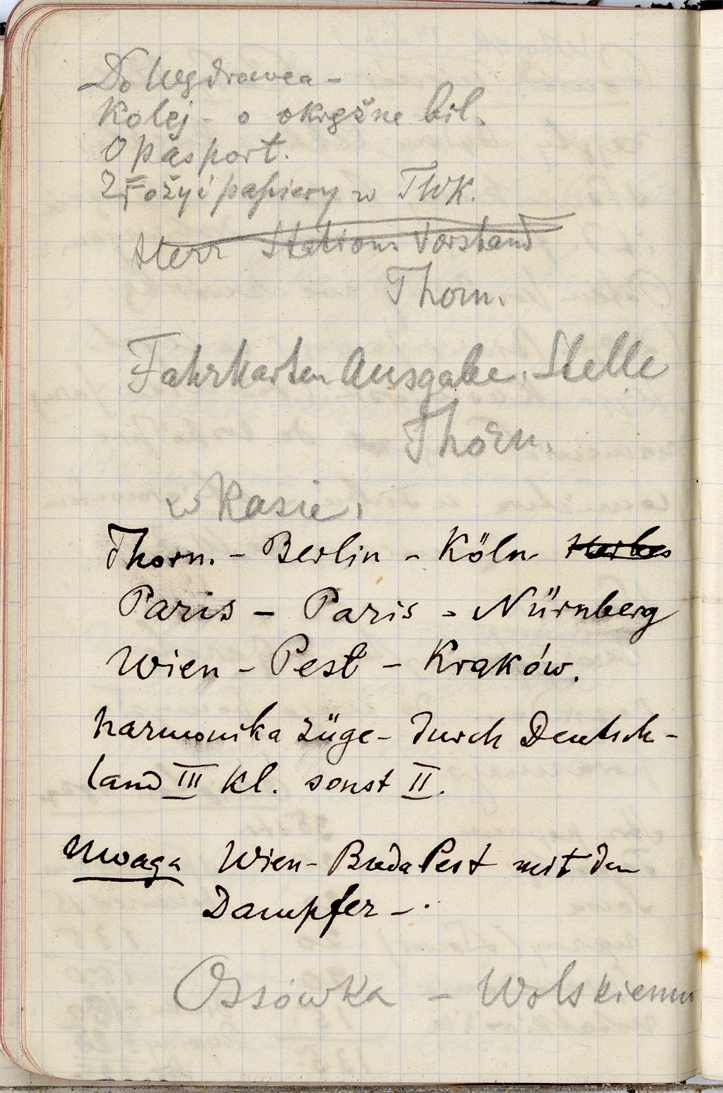 Do Wędrowca -
Kolej - o okręžne bil.
O pasport.
Złožyć papiery w TWK.
Herr Stations Vorstand
Thorn.
Fahrkarten Ausgabe. Stelle
Thorn.
w Kasie,
Thorn. - Berlin - Köln
Paris - Paris - Nürnberg
Wien - Pest - Kraków.
harmonika züge - durch Deutsch-
land III kl. sonst II.
Uwaga Wien - BudaPest mit den
Dampfer -.
Ossówka - Wolskiemu